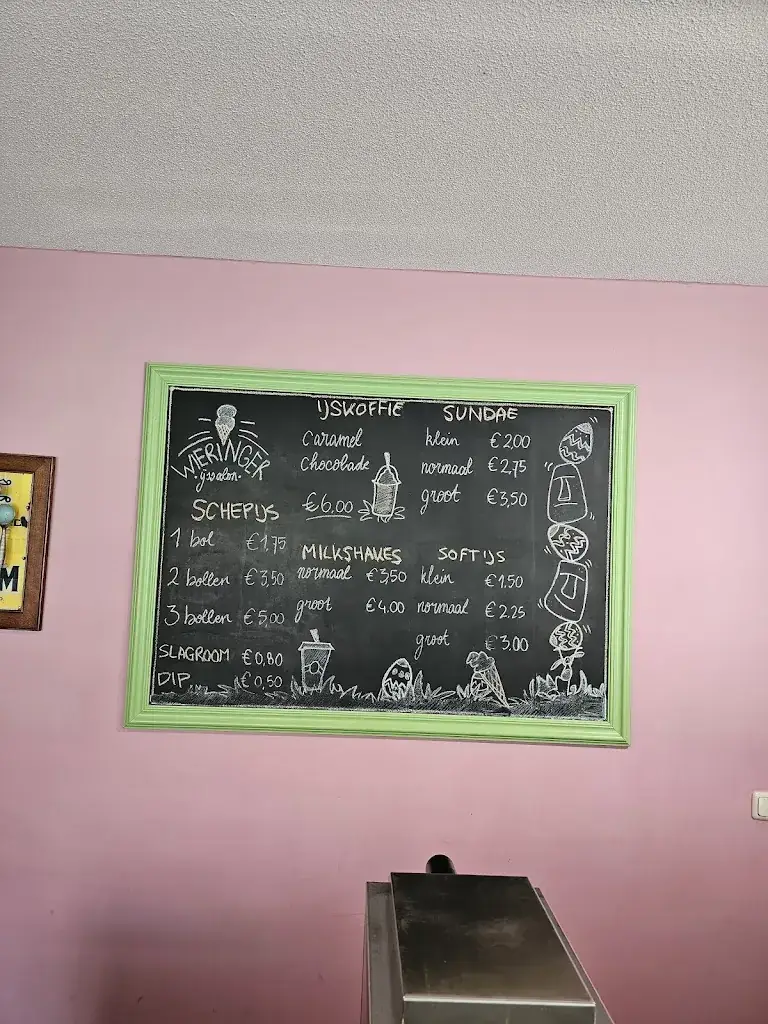 WIERINGER
ijssalon.
SCHEPIJS
1 bol €1,75
2 bollen €3,50
3 bollen €5,00
SLAGROOM €0,80
DIP €0,50
IJSKOFFIE
Caramel
Chocolade
€6,00
MILKSHAKES
normaal €3,50
groot €4.00
SUNDAE
klein €2,00
normaal €2,75
groot €3,50
SOFTIJS
klein €1.50
normaal €2.25
groot €3,00
M